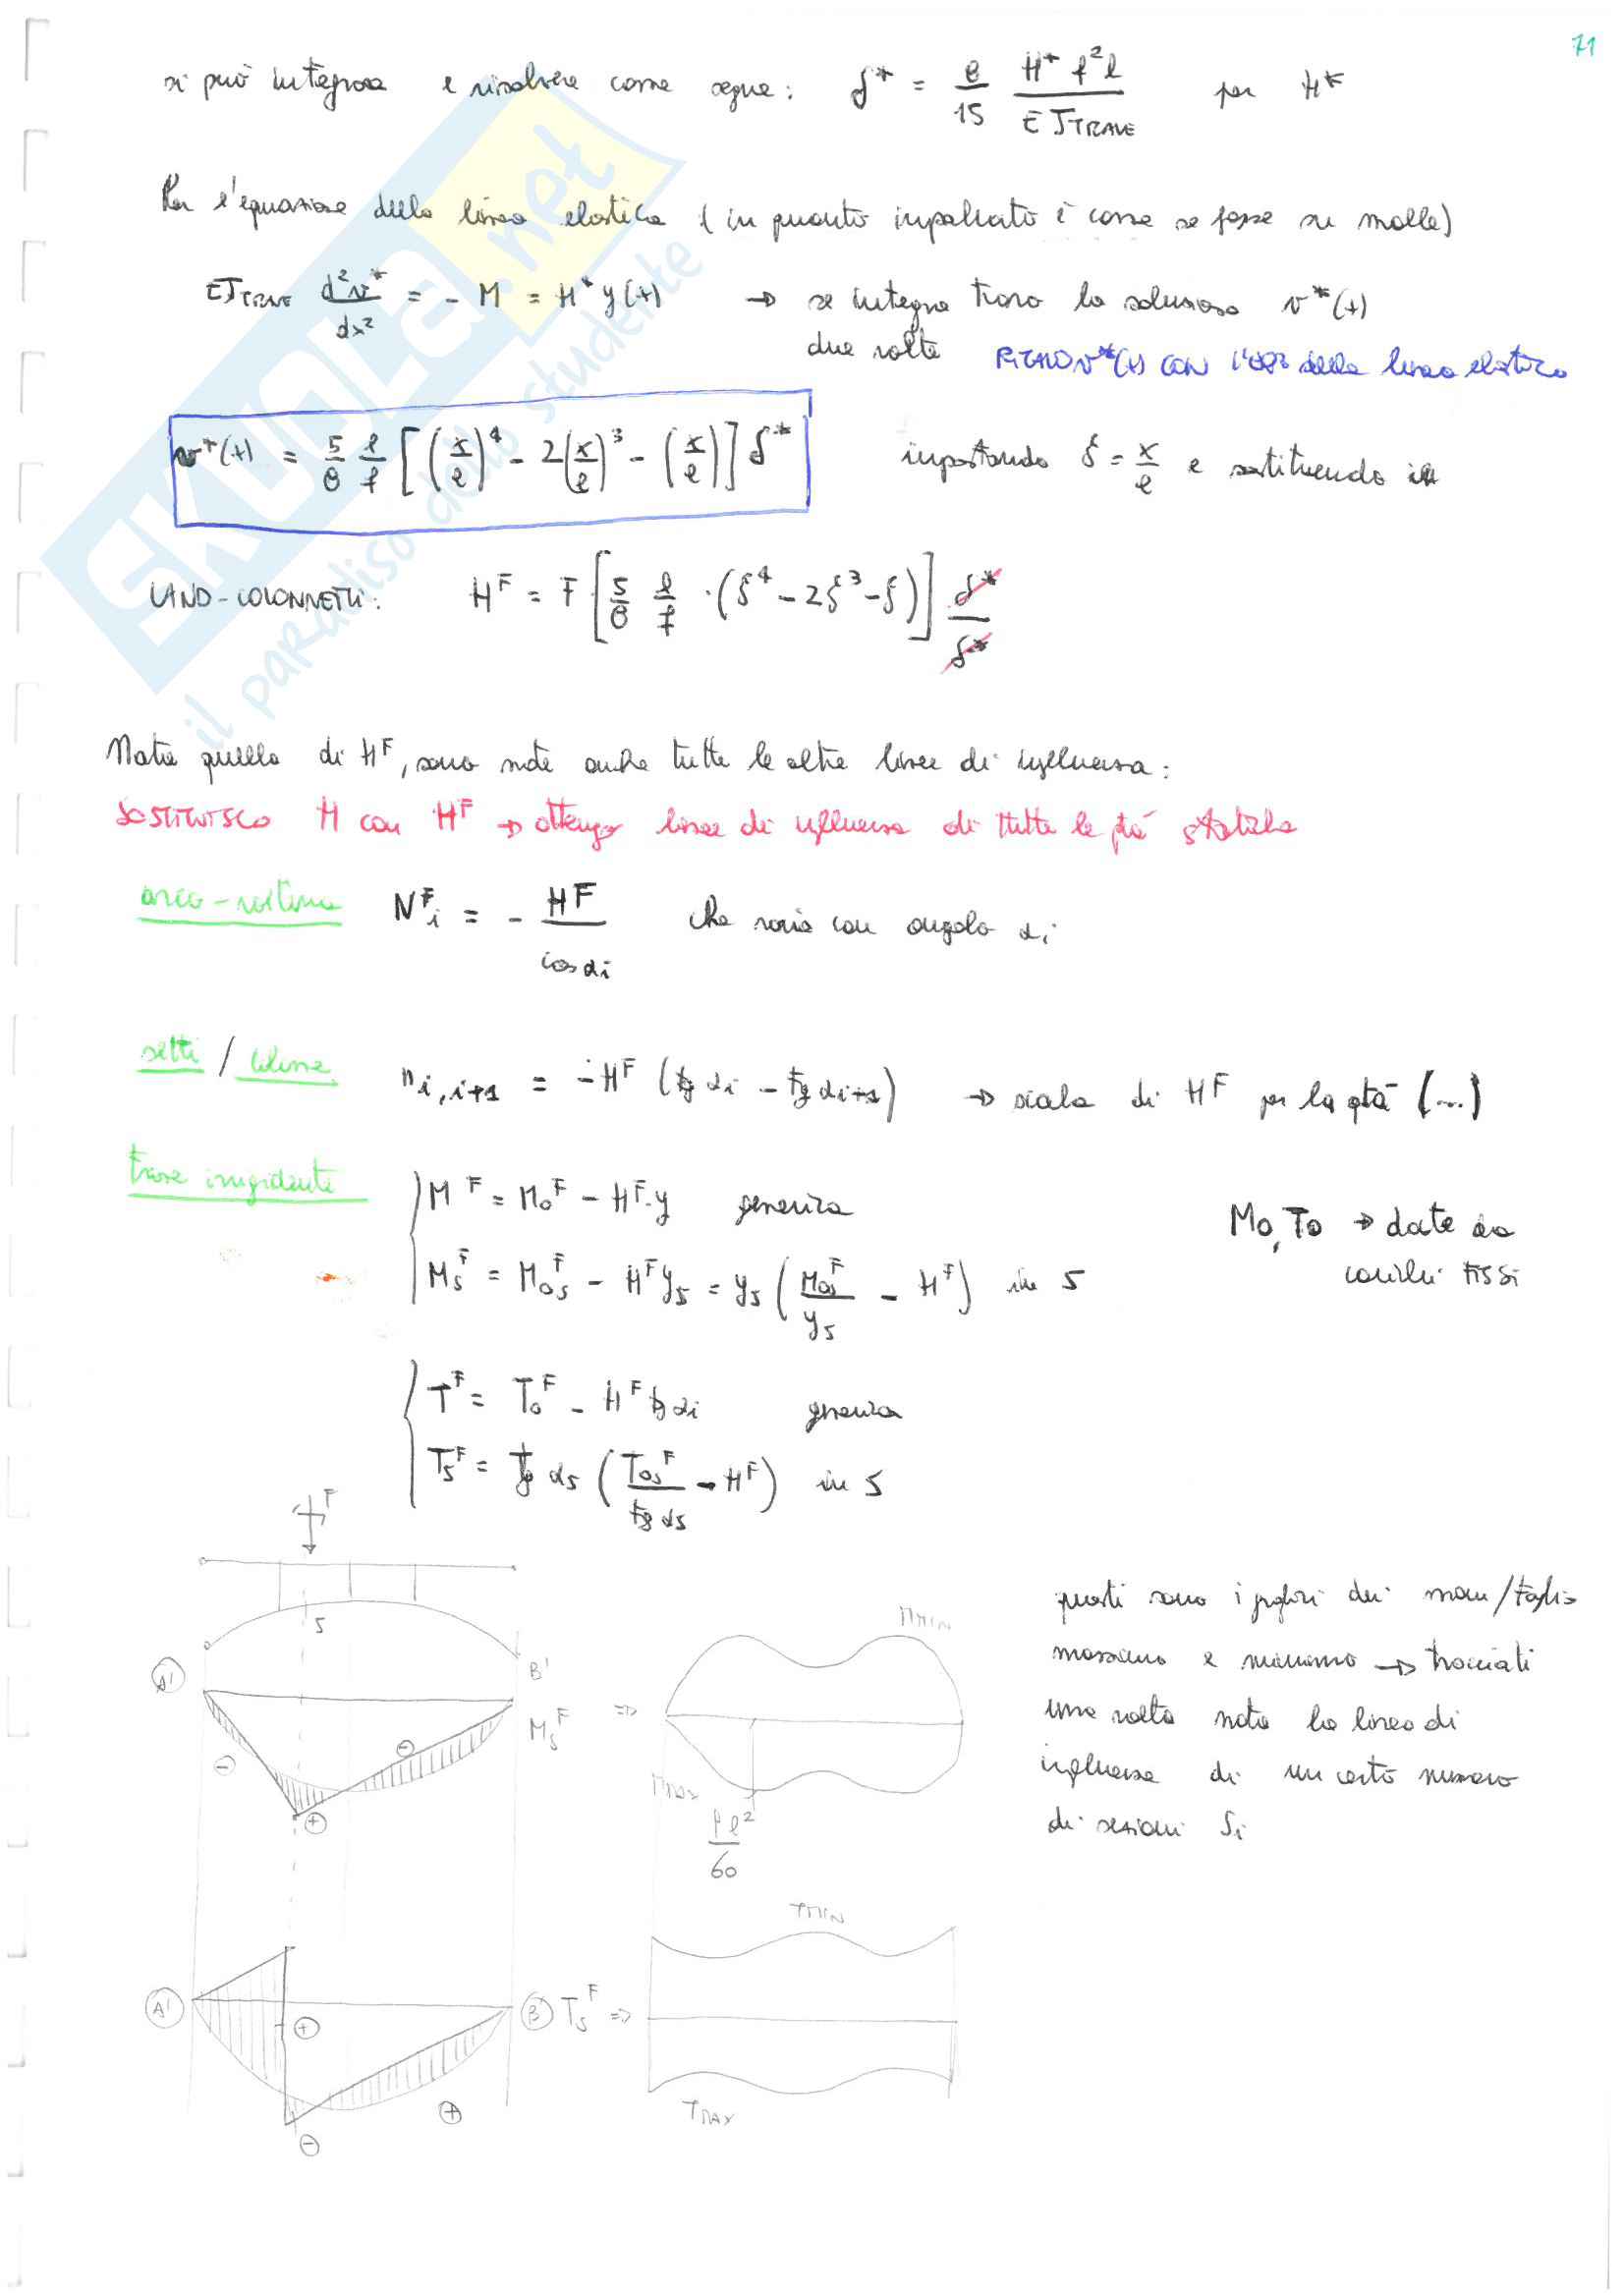 71
si può integrare e risolvere come segue: δ* = 8/15 H* f² l / EJ TRAVE per H*
Per l'equazione della linea elastica (in quanto impalcato è come se fosse su molle)
EJ TRAVE d²v*/dx² = - M = H* y(x) → se integro trovo la soluzione v*(x)
due volte RICAVO v*(x) CON L'EQ. della linea elastica
v*(x) = 5/8 l/f [(x/l)⁴ - 2(x/l)³ - (x/l)] δ* impostando ξ = x/l e sostituendo in
LAND-COLONNETTI: H^F = F [5/8 l/f · (ξ⁴ - 2ξ³ - ξ)] δ*/δ*
Nota quella di H^F, sono note anche tutte le altre linee di influenza:
SOSTITUISCO H con H^F → ottengo linee di influenza di tutte le qtà statiche
arco-volta N^F_i = - H^F / cos αi che varia con angolo αi
setti / colonne n i,i+1 = -H^F (tg αi - tg αi+1) → scala di H^F per la qtà (...)
trave irrigidente M^F = M0^F - H^F·y generica M0, T0 → date da
MS^F = M0S^F - H^F yS = yS (M0S^F / yS - H^F) in S carichi FISSI
T^F = T0^F - H^F tg αi generica
TS^F = tg αS (T0S^F / tg αS - H^F) in S
F
S
questi sono i grafici dei mom/taglio
massimo e minimo → tracciati
una volta nota la linea di
influenza di un certo numero
di sezioni Si
A' B' MS^F ⇒ MMIN
⊖ ⊖ ⊕
MMAX
pl²/60
TMIN
A' ⊕ B' TS^F ⇒
⊕ ⊖
TMAX
SKUOLA.net
il paradiso dello studente